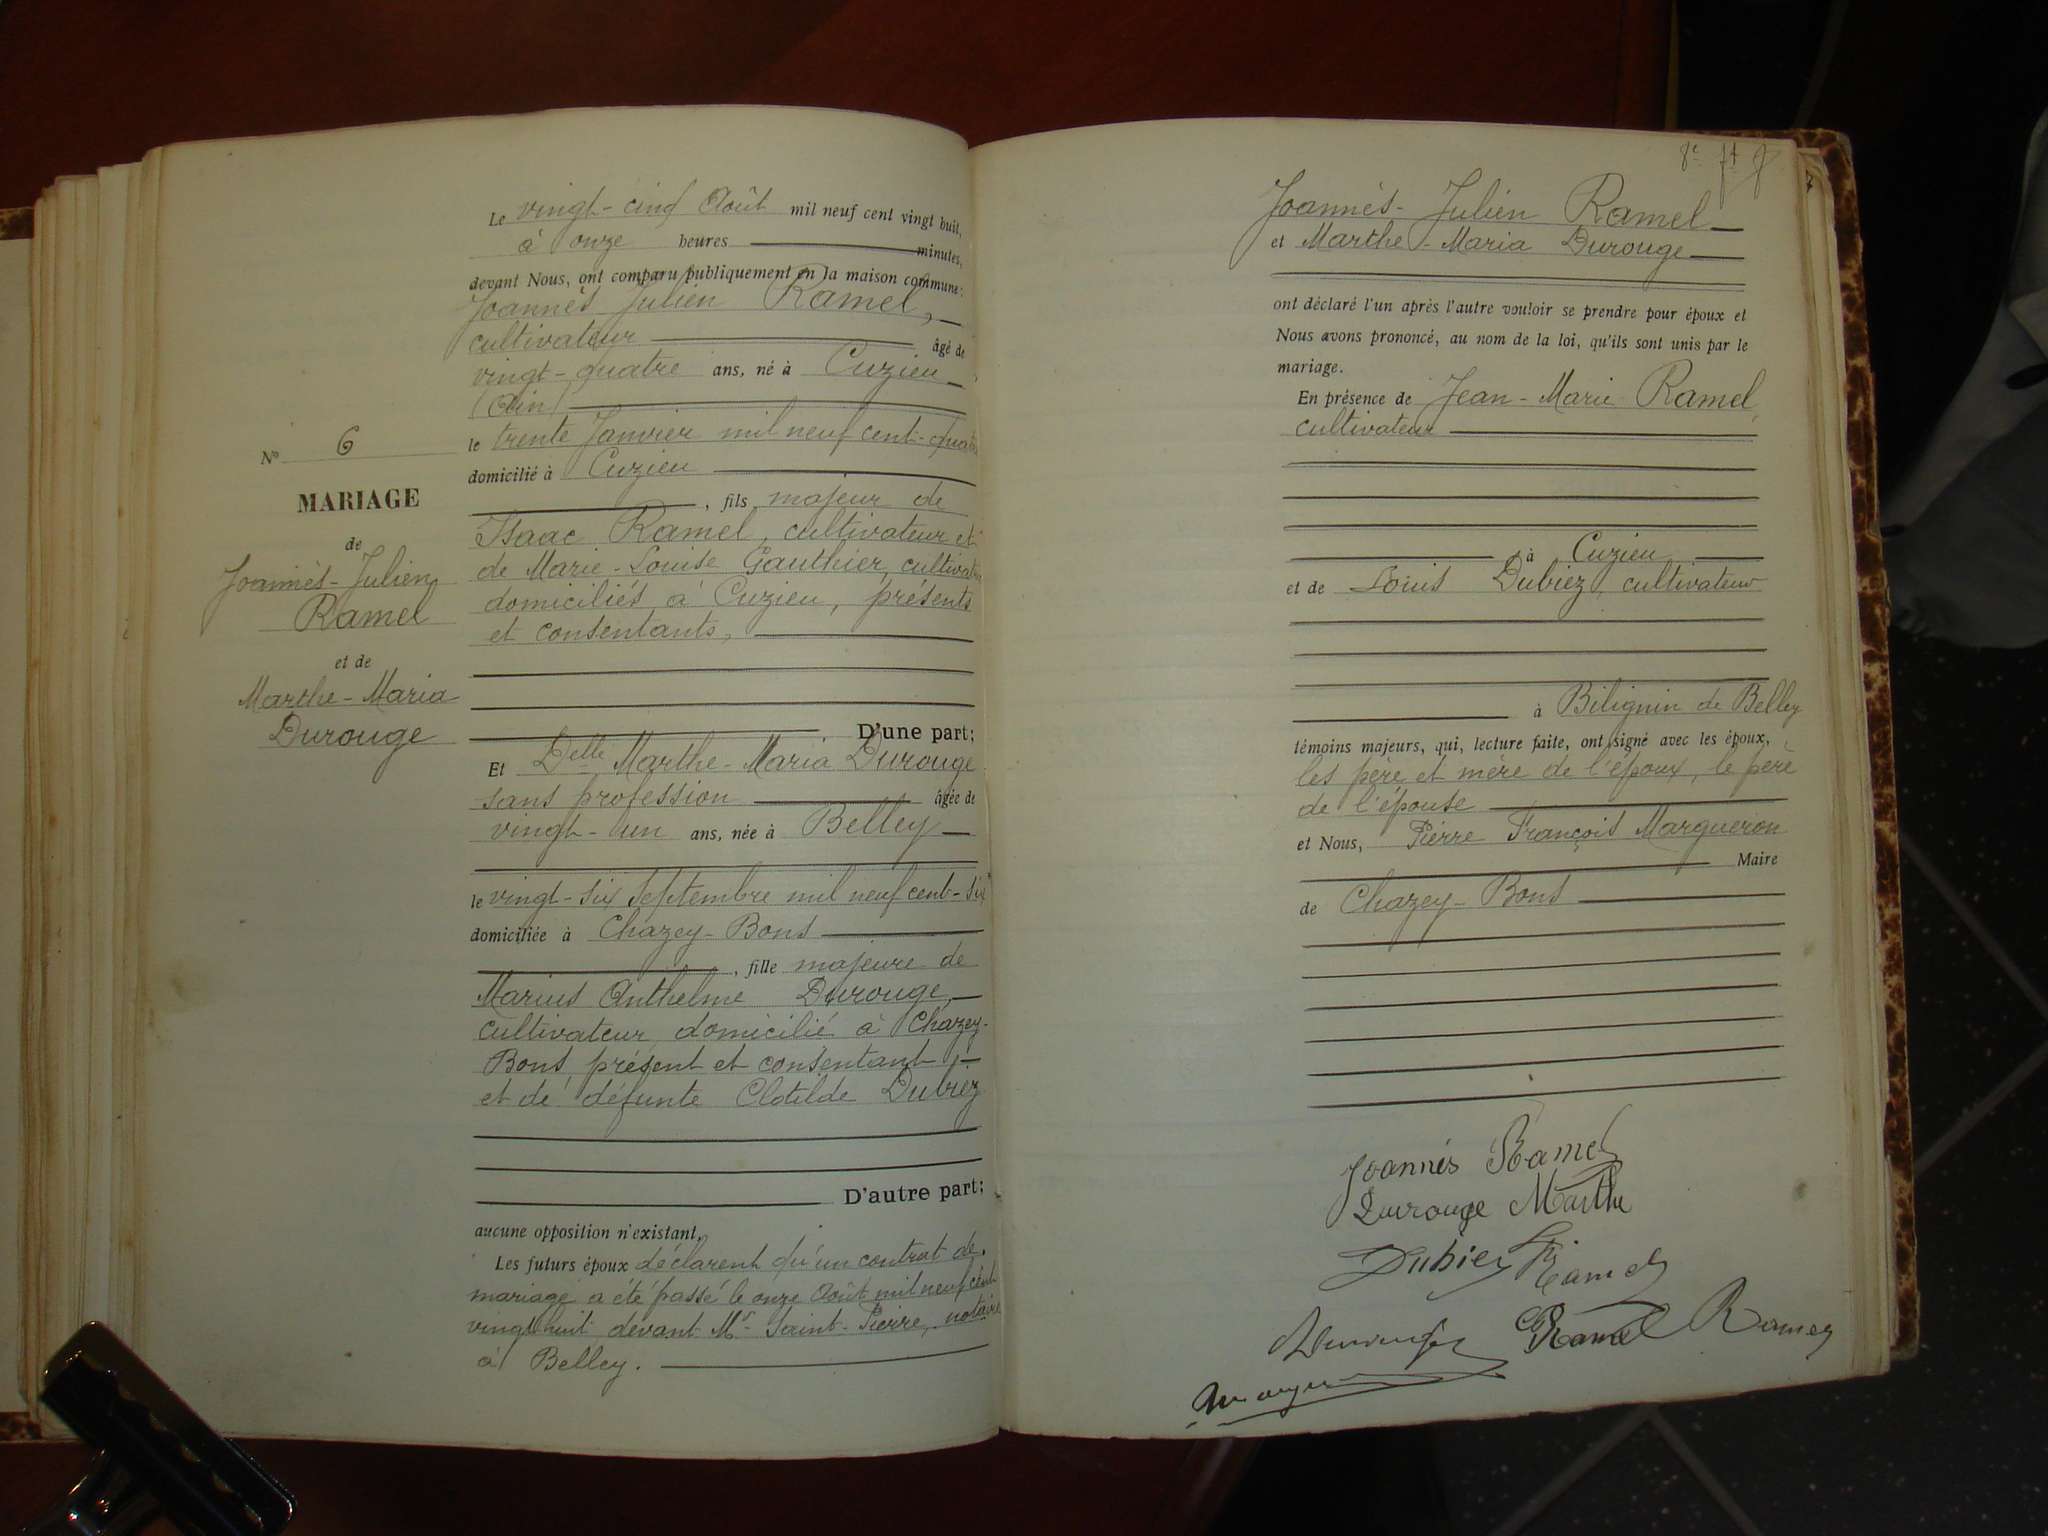 N° 6
MARIAGE
de
Joannès-Julien
Ramel
et de
Marthe-Maria
Durouge
Le vingt-cinq Août mil neuf cent vingt huit,
à onze heures minutes,
devant Nous, ont comparu publiquement en la maison commune:
Joannès Julien Ramel,
cultivateur âgé de
vingt-quatre ans, né à Cuzieu
(Ain)
le trente Janvier mil neuf cent-quatre
domicilié à Cuzieu
, fils majeur de
Isaac Ramel, cultivateur et
de Marie-Louise Gauthier, cultivat
domiciliés à Cuzieu, présents
et consentants,
D'une part;
Et Delle Marthe-Maria Durouge
sans profession âgée de
vingt-un ans, née à Belley
le vingt-six Septembre mil neuf cent-six
domiciliée à Chazey-Bons
, fille majeure de
Marius Anthelme Durouge,
cultivateur, domicilié à Chazey-
Bons, présent et consentant;
et de défunte Clotilde Dubiez
D'autre part;
aucune opposition n'existant,
Les futurs époux déclarent qu'un contrat de
mariage a été passé le onze Août mil neuf cent
vingt huit devant Mr Saint-Pierre, notaire
à Belley.
Joannès-Julien Ramel
et Marthe-Maria Durouge
ont déclaré l'un après l'autre vouloir se prendre pour époux et
Nous avons prononcé, au nom de la loi, qu'ils sont unis par le
mariage.
En présence de Jean-Marie Ramel,
cultivateur
à Cuzieu
et de Louis Dubiez, cultivateur
à Bilignin de Belley
témoins majeurs, qui, lecture faite, ont signé avec les époux,
les père et mère de l'époux, le père
de l'épouse
et Nous, Pierre François Margueron
Maire
de Chazey-Bons
Joannès Ramel
Durouge Marthe
Dubiez Ramel
Durouge Ramel Ramel